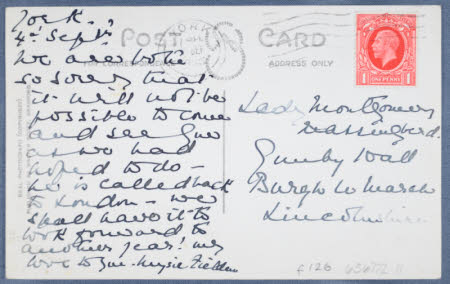 York.
4th Sept.
We are both
so sorry that
it will not be
possible to come
and see you
as we had
hoped to do –
he is called back
to London – we
shall have it to
look forward to
another year! My
love to you
POST CARD
ADDRESS ONLY
ONE PENNY
Lady Montgomery
Massingberd
Gunby Hall
Burgh le Marsh
Lincolnshire
£126